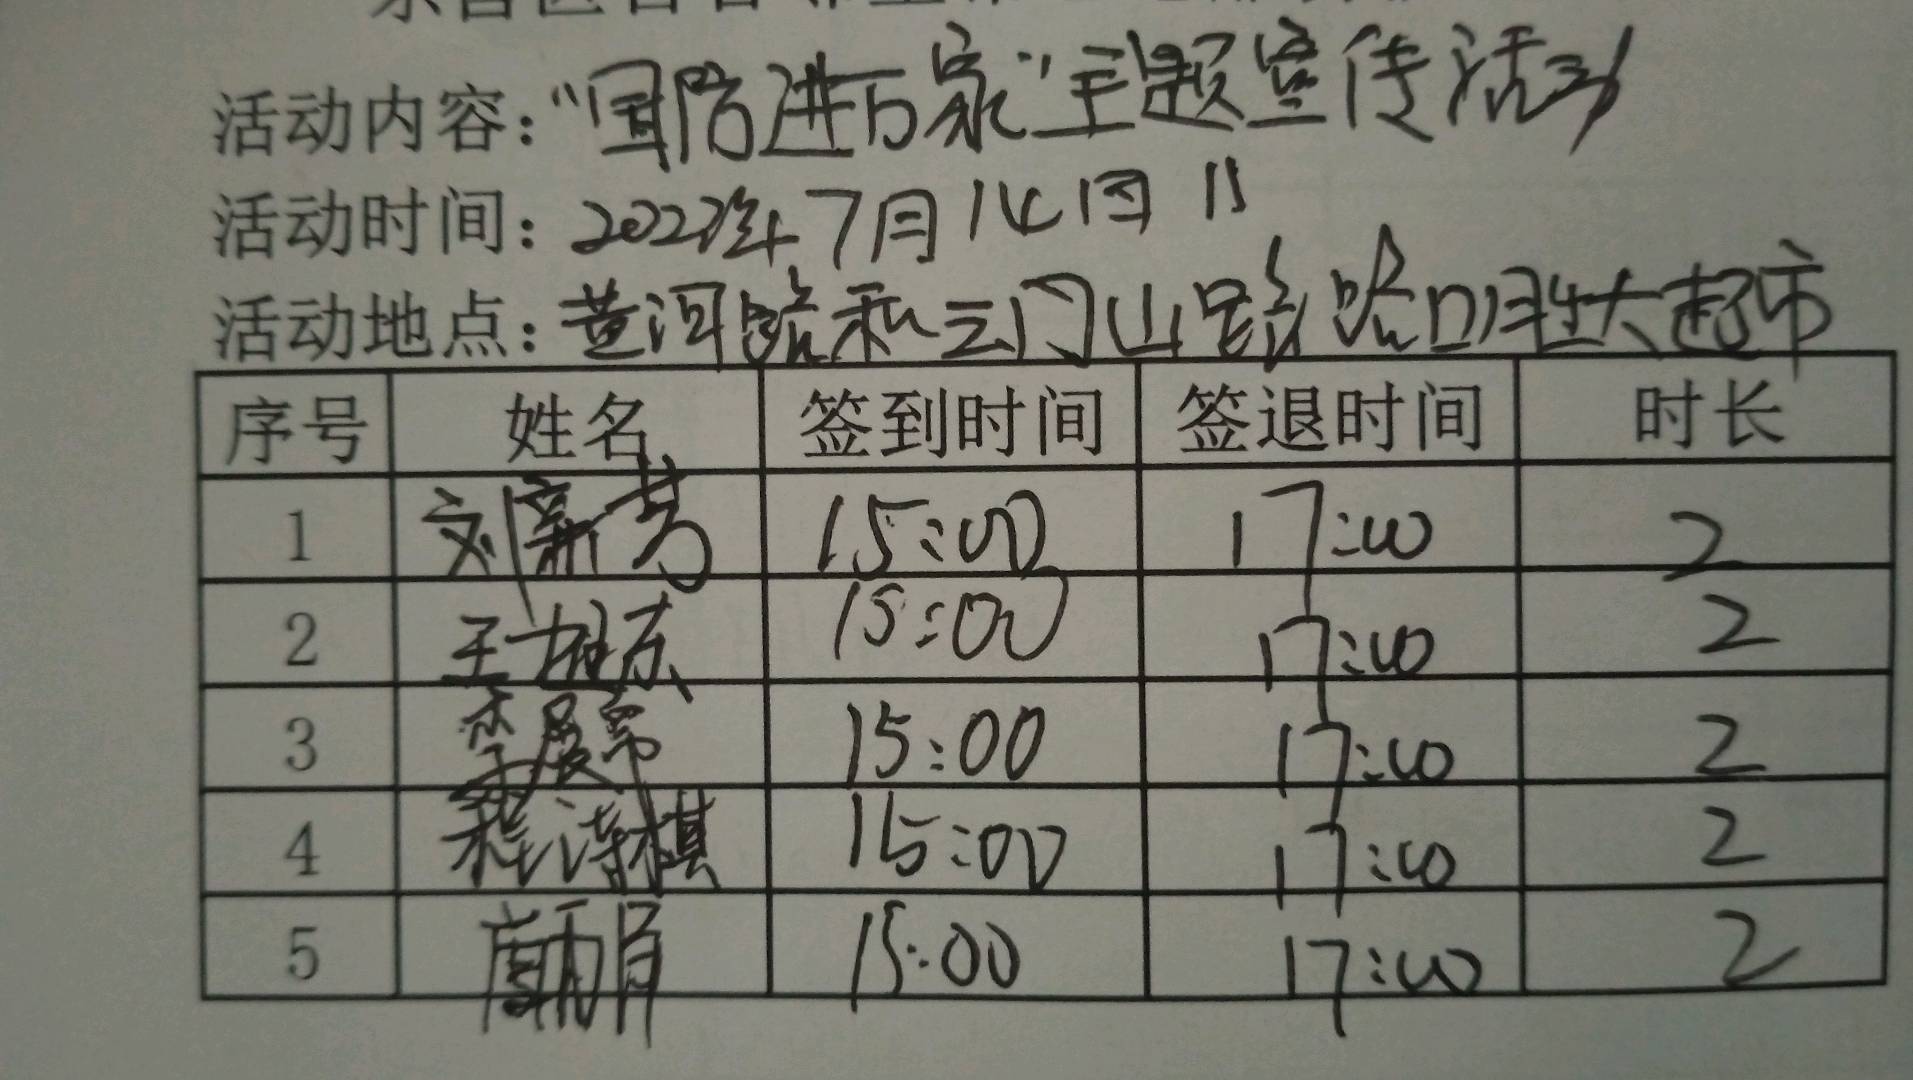 活动内容：“国防进万家”主题宣传活动
活动时间：2022年7月14日
活动地点：黄河路和云门山路路口胜大超市
序号 姓名 签到时间 签退时间 时长
1 刘新芳 15:00 17:00 2
2 王雄东 15:00 17:00 2
3 15:00 17:00 2
4 程诗棋 15:00 17:00 2
5 15:00 17:00 2